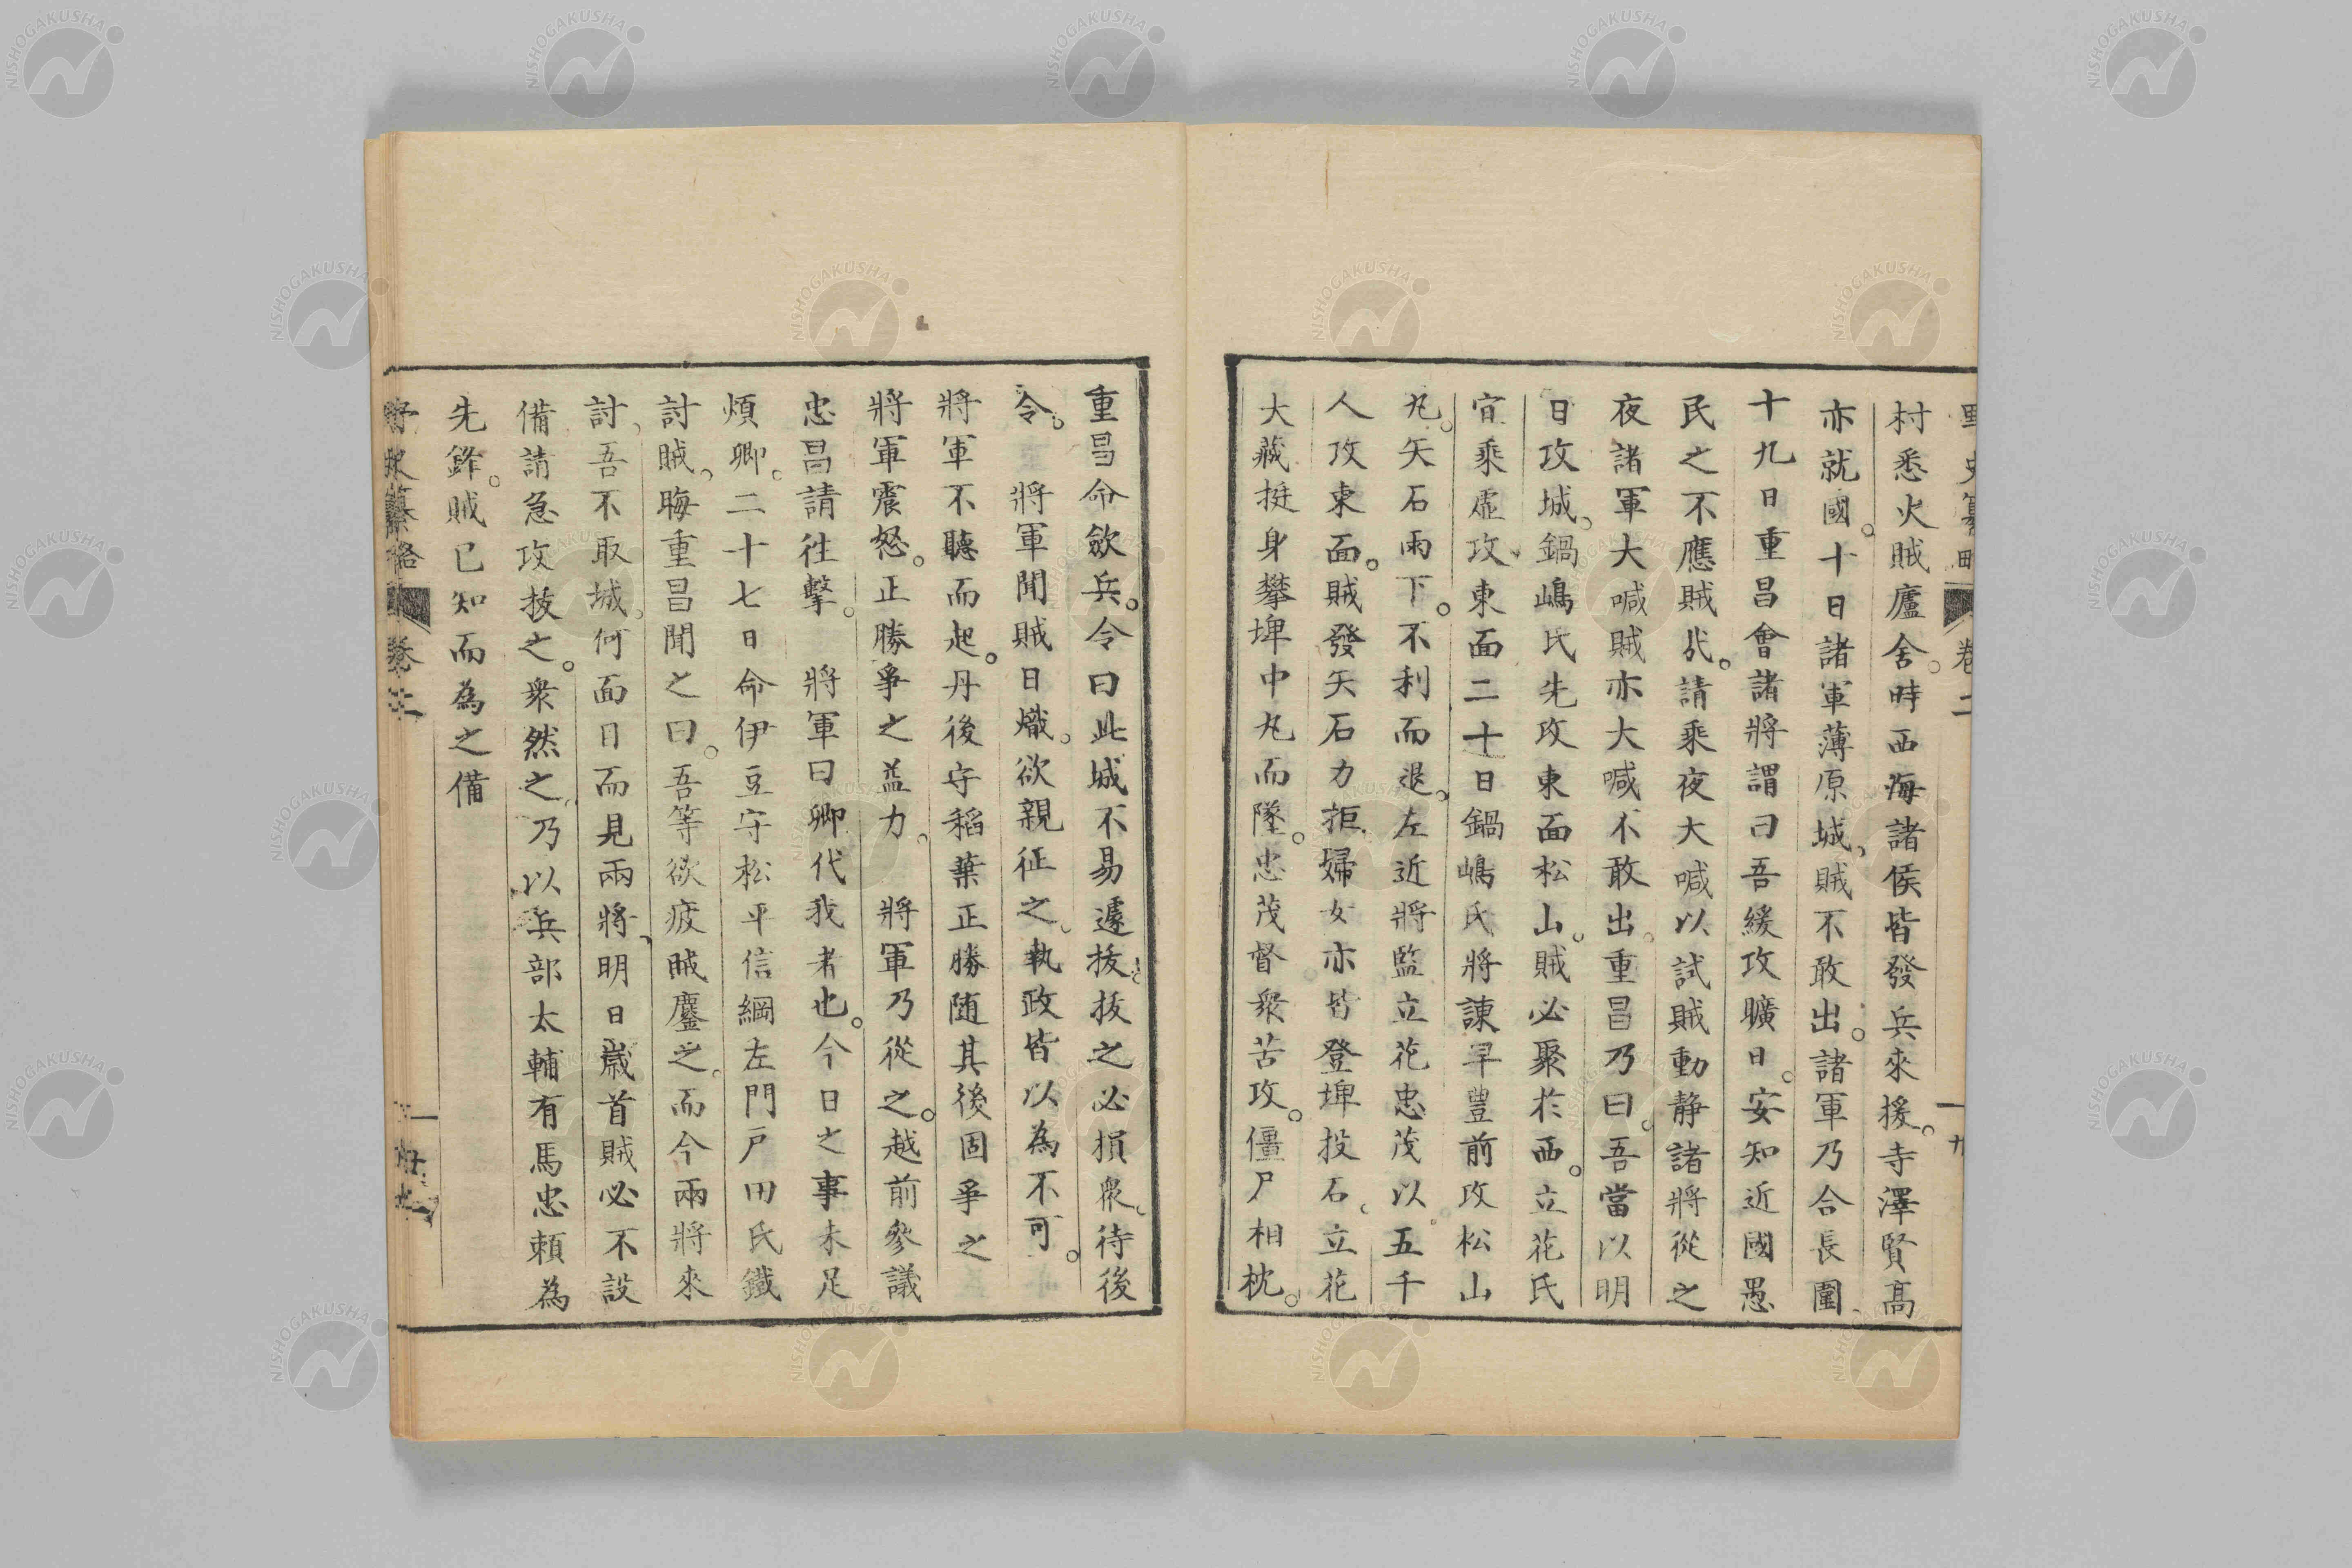 野史纂略 卷二 十九
村悉火賊廬舍。時西海諸侯皆發兵來援。寺澤賢高
亦就國。十日諸軍薄原城、賊不敢出。諸軍乃合長圍、
十九日重昌會諸將謂曰吾緩攻曠日。安知近國愚
民之不應賊。請乘夜大喊以試賊動静諸將從之
夜諸軍大喊賊亦大喊不敢出。重昌乃曰。吾當以明
日攻城、鍋嶋氏先攻東面松山。賊必聚於西。立花氏
宜乘虛攻、東面二十日鍋嶋氏將諫早豊前攻松山
丸。矢石雨下。不利而退。左近將監立花忠茂以五千
人攻東面。賊發矢石力拒、婦女亦皆登埤投石、立花
大藏挺身攀埤中丸而墜。忠茂督衆苦攻。僵尸相枕。
重昌命歛兵。令曰此城不易遽拔。拔之必損衆、待後
令。 將軍聞賊日熾。欲親征之。執政皆以為不可。
將軍不聽而起。丹後守稻葉正勝随其後固爭之
將軍震怒。正勝爭之益力。 將軍乃從之。越前參議
忠昌請往擊。 將軍曰卿代我者也。今日之事未足
煩卿。二十七日命伊豆守松平信綱左門戸田氏鐵
討賊、晦重昌聞之曰。吾等欲疲賊鏖之。而今兩將來
討、吾不取城。何面目而見兩將、明日嵗首賊必不設
備請急攻拔之。衆然之、乃以兵部太輔有馬忠頼為
先鋒。賊已知而為之備
卷二